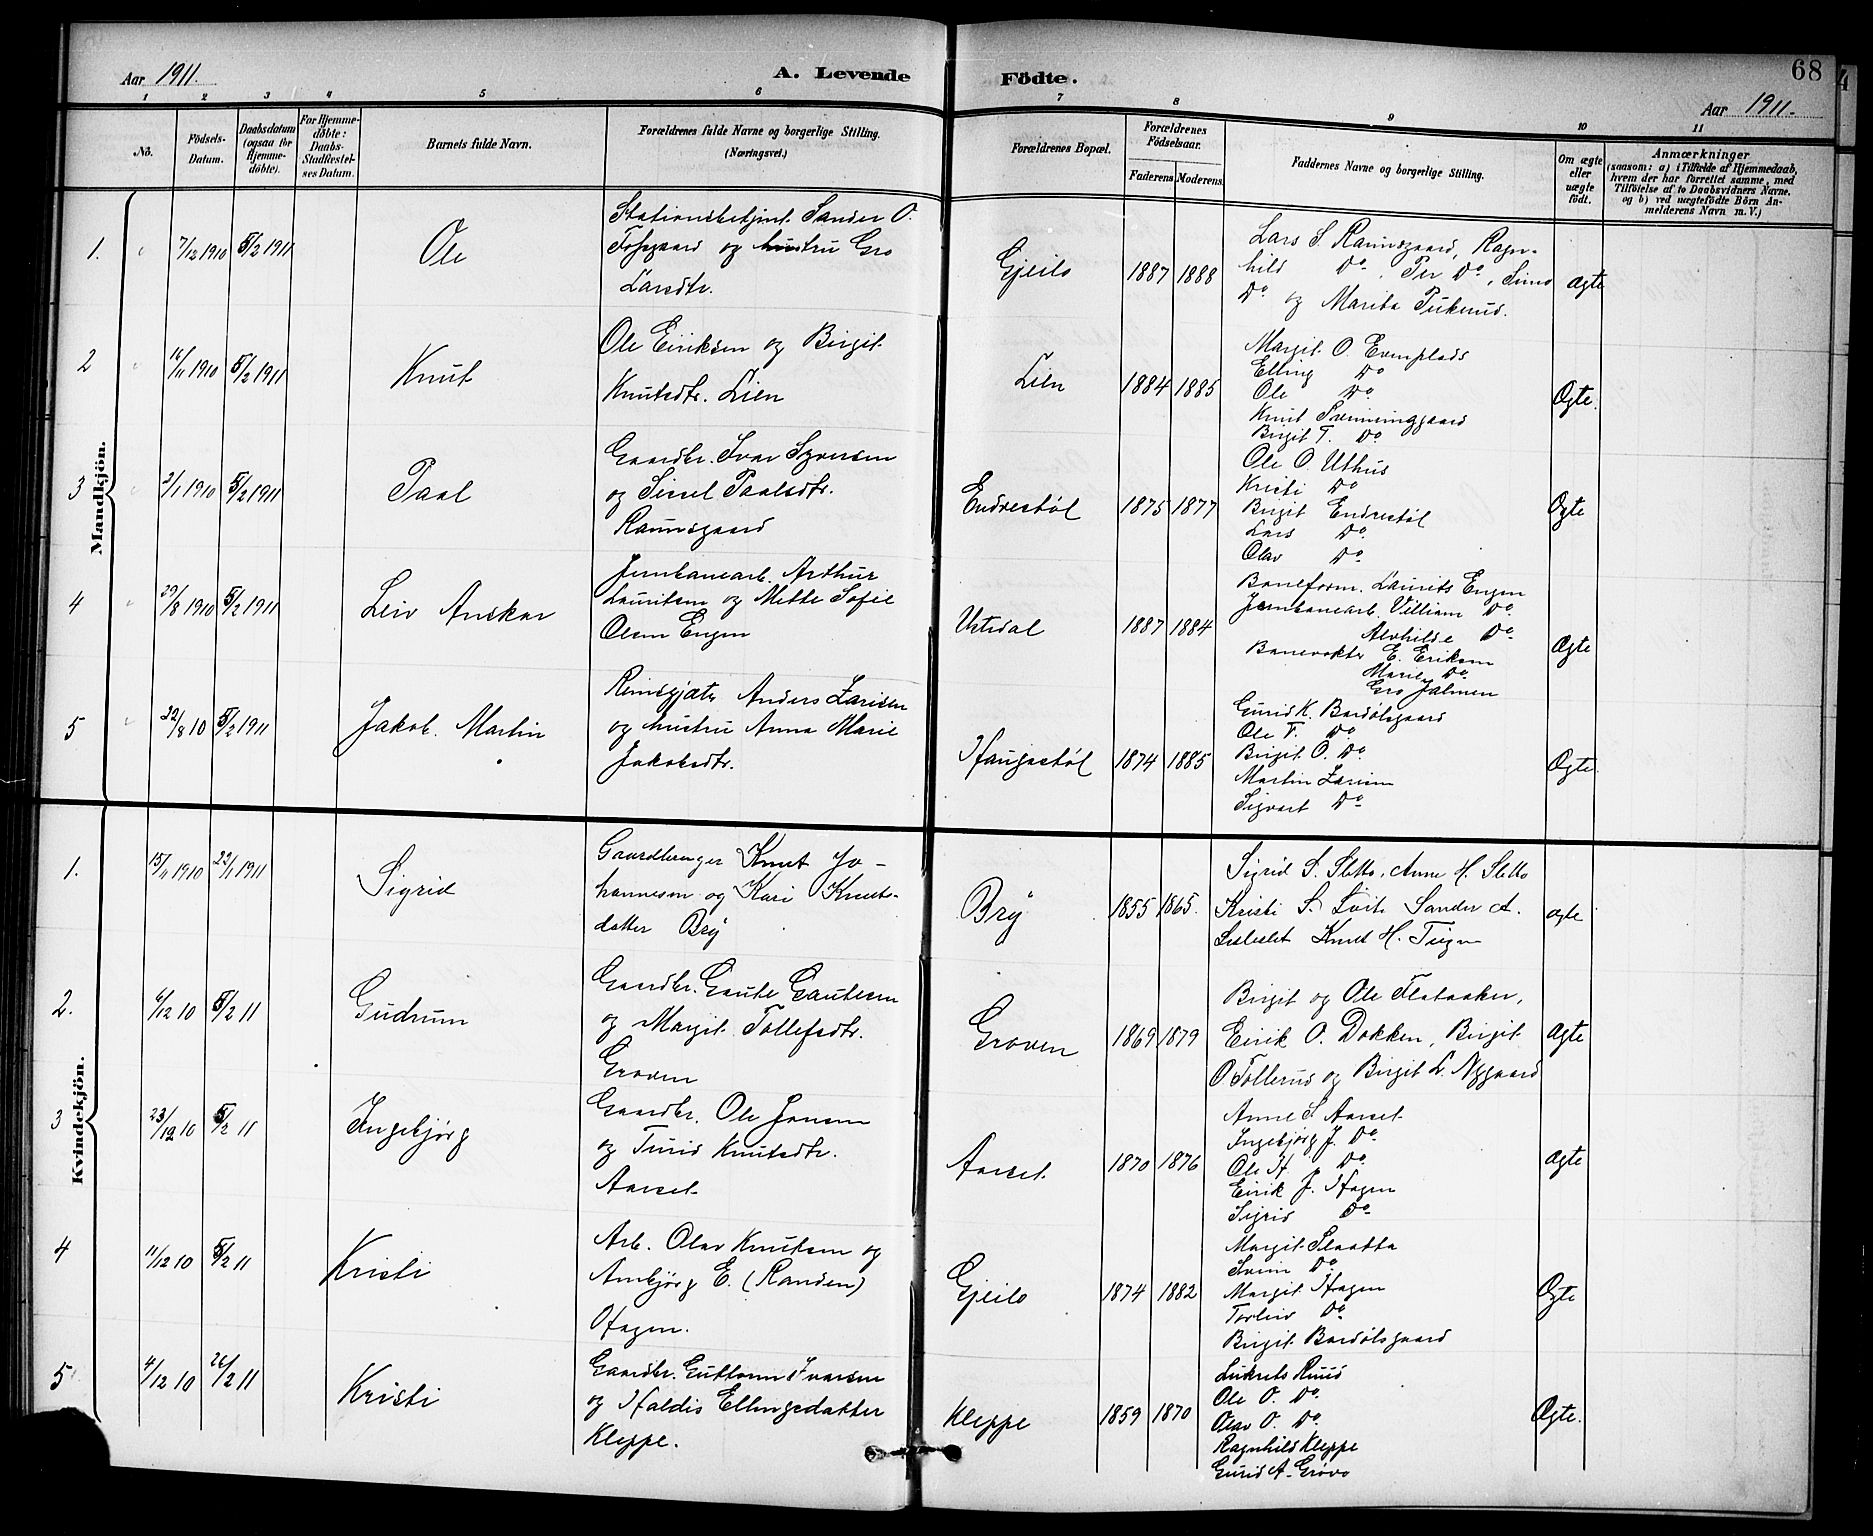 Aar 1911.
A. Levende Födte.
68
Aar 1911.
1 2 3 4 5 6 7 8 9 10 11
No.
Födsels-Datum.
Daabsdatum (ogsaa for Hjemme-døbte).
For Hjemme-døbte: Daabs-Stadfæstel-ses Datum.
Barnets fulde Navn.
Forældrenes fulde Navne og borgerlige Stilling.
(Næringsvei.)
Forældrenes Bopæl.
Forældrenes Födselsaar.
Faderens Moderens
Faddernes Navne og borgerlige Stilling.
Om ægte eller uægte födt.
Anmærkninger
(saasom: a) i Tilfælde af Hjemmedaab,
hvem der har forrettet samme, med
Tilföielse af to Daabsvidners Navne,
og b) ved uægtefödte Börn An-
melderens Navn m. V.)
Mandkjön.
1. 7/12 1910 5/2 1911 Ole
Stationsbetjent Sander O.
Tofsgaard og hustru Gro
Larsdtr.
Gjeilo 1887 1888
Lars S Ramsgaard, Ragn-
hild Do, Per Do,
Do og Marita
Ægte
2 16/11 1910 5/2 1911 Knut
Ole Eiriksen og Birgit
Knutsdtr. Lien
Lien 1884 1885
Margit O. Evenplads
Elling Do
Ole Do
Knut Svenninggaard
Birgit T. Do
Ægte.
3 2/1 1910 5/2 1911 Paal
Gaardbr. Ivar Syversen
og Sissel Paalsdtr.
Ramsgaard
Endrestøl 1875 1877
Ole O. Uthus
Kristi Do
Birgit Endrestøl
Lars Do
Olav Do
Ægte
4 29/8 1910 5/2 1911 Leiv Anskar
Jernbanearb. Arthur
Lauritsen og Mette Sofie
Olsen Engen
Ustedal 1887 1884
Baneform. Laurits Engen
Jernbanearb. Villiam Do
Alvhilde Do
Banevokter E. Eriksen
Marie Do
Gro Jalmen
Ægte
5 22/8 10 5/2 1911 Jakob. Martin
Rensgjæter Anders Larsen
og hustru Anna Marie
Jakobsdtr.
Haugastøl 1874 1885
Gunild K. Bardølsgaard
Ole T. Do
Birgit O. Do
Martin Larsen
Sigvart Do
Ægte.
Kvindekjön.
1. 15/11 1910 22/1 1911 Sigrid
Gaardbruger Knut Jo-
hannesen og Kari Knuts-
datter Brÿ
Brÿ 1855 1865.
Sigrid S. Sletto, Anne H. Sletto
Kristi S. Sander A.
Knut H.
ægte
2. 6/12 10 5/2 11 Gudrum
Gaardbr. Gaute Gautesen
og Margit Tollefsdtr.
Groven
Groven 1869 1879
Birgit og Ole Flataaker,
Eirik O. Dokken, Birgit
O. Tollerud og Birgit L. Nygaard
Ægte
3 23/12 10 5/2 11 Ingebjørg
Gaardbr. Ole Jonsen
og Turid Knutsdtr.
Aarset
Aarset 1870 1876
Anne S. Aarset
Ingebjørg J. Do
Ole H Do
Eirik J. Hagen
Sigrid Do
Ægte
4 11/12 10 5/2 11 Kristi
Arb. Olav Knutsen og
Ambjørg E. (Randen)
Hagen.
Gjeilo 1874 1882
Margit Slaatta
Svein Do
Margit Hagen
Torleiv Do
Birgit Bardølsgaard
Ægte
5 4/12 10 26/2 11 Kristi
Gaardbr. Guttorm Ivarsen
og Haldis Ellingsdatter
Kleppe.
Kleppe 1859 1870
Lukrets Ruud
Ole O. Do
Olav O. Do
Ragnhild Kleppe
Gurid A. Grøvo
Ægte.